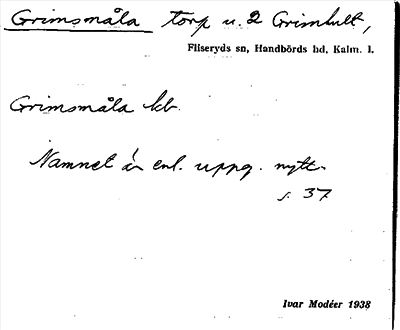 Grimsmåla torp u. 2 Grimhult,
Fliseryds sn, Handbörds hd, Kalm. l.
Grimsmåla kb.
Namnet är enl. uppg. nytt.
s. 37
Ivar Modéer 1938